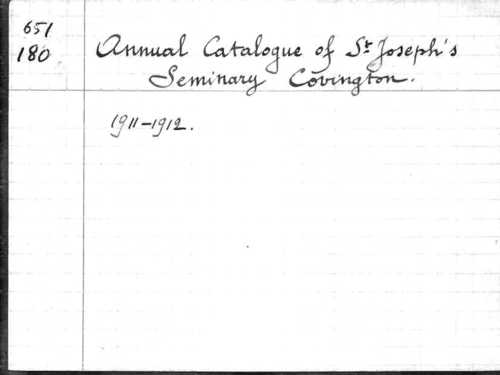 651
180
Annual Catalogue of St Joseph's
Seminary Covington.
1911-1912.